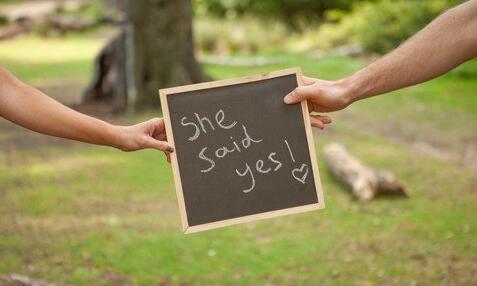 She
said
yes! ♡